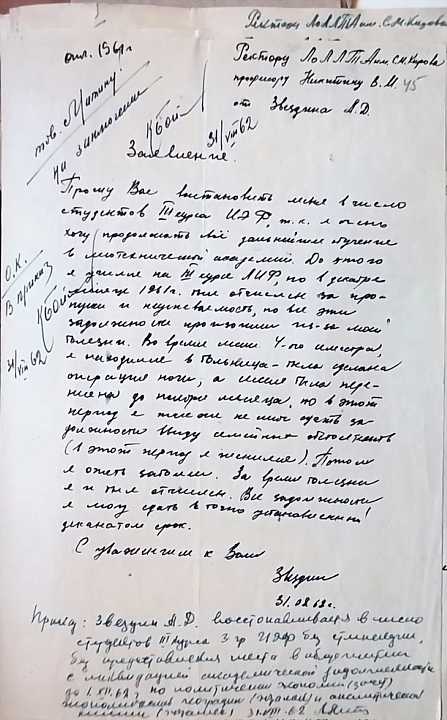 Ректору ЛоЛЛТА им. С.М. Кирова
Ректору ЛоЛЛТА им. С.М. Кирова
профессору Никитину В.М.
от Звездина А.Д.
отч. 1961г
тов. Митину
на заключение
31/VIII 62
Заявление.
Прошу Вас восстановить меня в число
студентов III курса ИЭФ, т.к. я очень
хочу продолжать своё дальнейшее обучение
в лесотехнической академии. До этого
я учился на III курсе ЛИФ, но в декабре
месяце 1961г. был отчислен за про-
пуски и неуспеваемость, но все эти
задолжности произошли из-за моей
болезни. Во время 4-ого семестра,
я находился в больнице - была сделана
операция ноги, а сессия была пере-
несена до ноября месяца, но в этот
период я тоже не мог сдать за-
долженности ввиду семейных обстоятельств
(в этот период я женился). Потом
я опять заболел. За время болезни
я и был отчислен. Все задолжности
я могу сдать в точно установленный
деканатом срок.
О.К.
В приказ
31/VIII 62
С уважением к Вам
Звездин
31.08.62г.
Приказ: Звездин А.Д. восстанавливается в число
студентов III курса 3 гр ИЭФ без стипендии,
без предоставления места в общежитии
с ликвидацией академической задолженности
до 1.XII.62, по политической экономии (зачет)
экономической географии (экзамен) и аналитической
химии (экзамен) 31.VIII.62